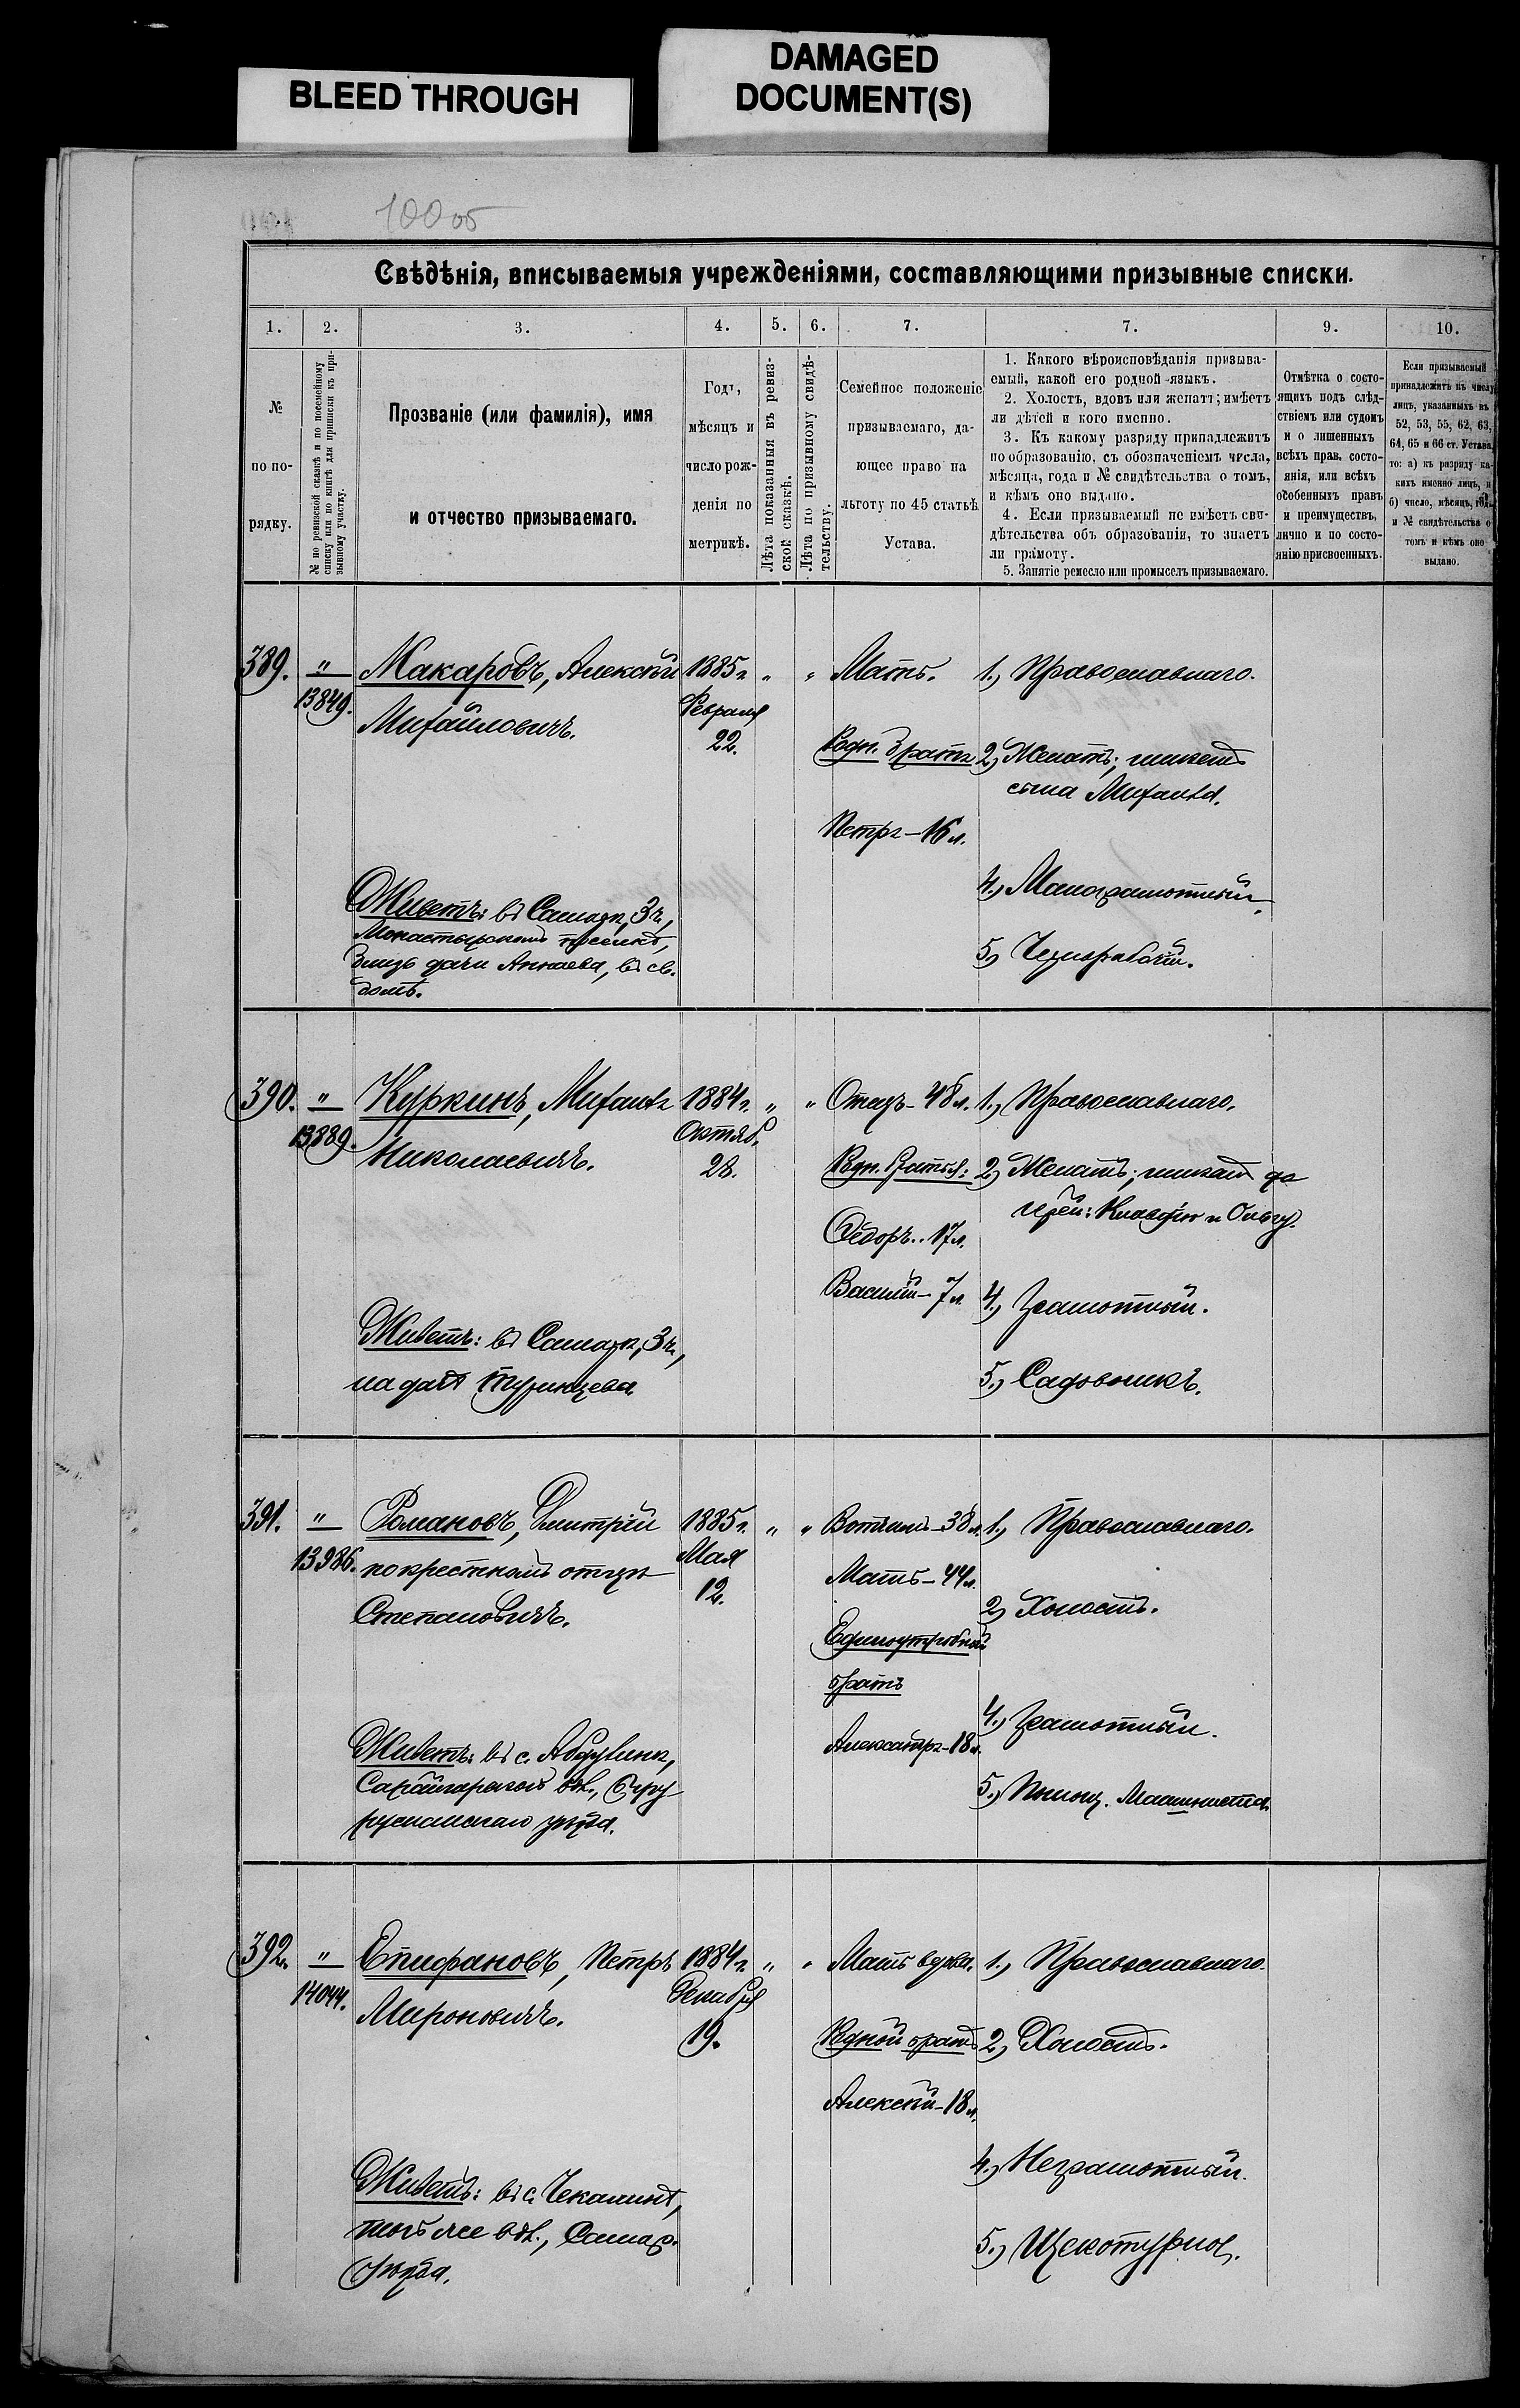 BLEED THROUGH
DAMAGED
DOCUMENT(S)
10005
Свѣдѣнія, вписываемыя учрежденіями, составляющими призывные списки.
1.
2.
3.
4.
5.
6.
7.
7.
9.
10.
№
по по-
рядку.
№ по ревизской сказкѣ и по посемейному
списку или по книгѣ для приписки къ при-
зывному участку.
Прозваніе (или фамилія), имя
и отчество призываемаго.
Годъ,
мѣсяцъ и
число рож-
денія по
метрикѣ.
Лѣта показанныя въ ревиз-
ской сказкѣ.
Лѣта по призывному свидѣ-
тельству.
Семейное положеніе
призываемаго, да-
ющее право на
льготу по 45 статьѣ
Устава.
1. Какого вѣроисповѣданія призыва-
емый, какой его родной языкъ.
2. Холостъ, вдовъ или женатъ; имѣетъ
ли дѣтей и кого именно.
3. Къ какому разряду принадлежитъ
по образованію, съ обозначеніемъ числа,
мѣсяца, года и № свидѣтельства о томъ,
и кѣмъ оно выдано.
4. Если призываемый не имѣетъ сви-
дѣтельства объ образованіи, то знаетъ
ли грамоту.
5. Занятіе ремесло или промыселъ призываемаго.
Отмѣтка о состо-
ящихъ подъ слѣд-
ствіемъ или судомъ
и о лишенныхъ
всѣхъ прав. состо-
янія, или всѣхъ
особенныхъ правъ
и преимуществъ,
лично и по состо-
янію присвоенныхъ.
Если призываемый
принадлежитъ къ числу
лицъ, указанныхъ въ
52, 53, 55, 62, 63,
64, 65 и 66 ст. Устава,
то: а) къ разряду ка-
кихъ именно лицъ, и
б) число, мѣсяцъ, годъ
и № свидѣтельства о
томъ и кѣмъ оно
выдано.
389.
"
13849.
Макаровъ, Алексѣй
Михайловичъ.
Живетъ: въ Самарѣ, 3 ч.,
Монастырскомъ поселкѣ,
близъ дачи Аннаева, въ св.
домѣ.
1885 г.
Февраля
22.
"
"
Мать.
Родн. братъ
Петръ – 16 л.
1.) Православнаго.
2) Женатъ; имѣетъ
сына Михаила.
4.) Малограмотный.
5) Чернорабочій.
390.
"
13889.
Куркинъ, Михаилъ
Николаевичъ.
Живетъ: въ Самарѣ, 3 ч.,
на дачѣ
1884 г.
Октяб.
28.
"
"
Отецъ – 48 л.
Родн. братья:
Ѳедоръ.. 17 л.
Василій – 7 л.
1.) Православнаго.
2) Женатъ; имѣетъ до
черей: Клавдію и Ольгу.
4.) Грамотный.
5.) Садовникъ.
391.
"
13986.
Романовъ, Дмитрій
по крестномъ отцѣ
Степановичъ.
Живетъ: въ с. Абдулинѣ,
Сарайгирской вол., Бугу
русланскаго уѣзда.
1885 г.
Мая
12.
"
"
Вотчимъ – 38 л.
Мать – 44 л.
Единоутробный
братъ
Александръ – 18 л.
1.) Православнаго.
2) Холостъ.
4.) Грамотный.
5.) Помощ. Машиниста.
392.
"
14044.
Епифановъ, Петръ
Мироновичъ.
Живетъ: въ с. Чекалинѣ,
той же вол., Самар.
уѣзда.
1884 г.
Декабря
19.
"
"
Мать вдова.
Родной братъ
Алексѣй – 18 л.
1.) Православнаго.
2) Холостъ.
4.) Неграмотный.
5.) Щекотурное.